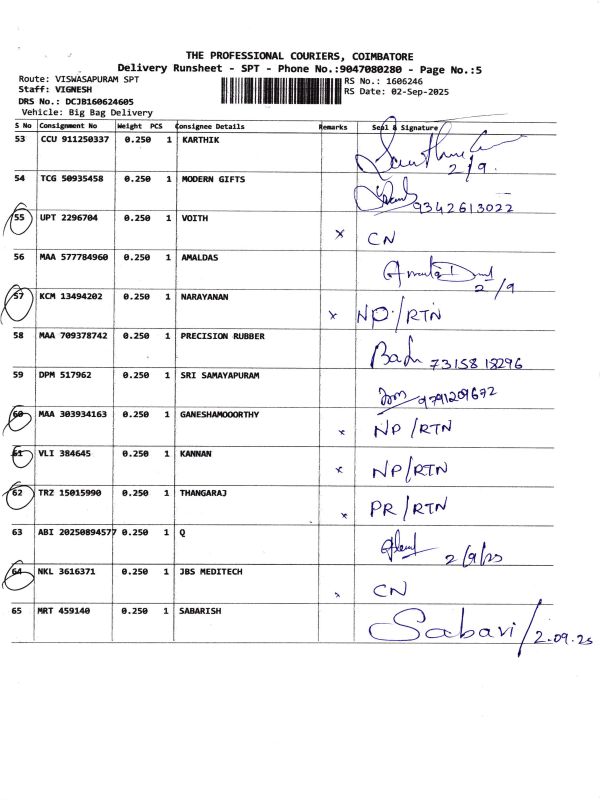 THE PROFESSIONAL COURIERS, COIMBATORE
Delivery Runsheet - SPT - Phone No.:9047080280 - Page No.:5
Route: VISWASAPURAM SPT RS No.: 1606246
Staff: VIGNESH RS Date: 02-Sep-2025
DRS No.: DCJB160624605
Vehicle: Big Bag Delivery
S No Consignment No Weight PCS Consignee Details Remarks Seal & Signature
53 CCU 911250337 0.250 1 KARTHIK 2/9.
54 TCG 50935458 0.250 1 MODERN GIFTS 9342613022
55 UPT 2296704 0.250 1 VOITH x CN
56 MAA 577784960 0.250 1 AMALDAS 2/9
57 KCM 13494202 0.250 1 NARAYANAN x NP/RTN
58 MAA 709378742 0.250 1 PRECISION RUBBER 73158 18296
59 DPM 517962 0.250 1 SRI SAMAYAPURAM 9791209672
60 MAA 303934163 0.250 1 GANESHAMOOORTHY x NP/RTN
61 VLI 384645 0.250 1 KANNAN x NP/RTN
62 TRZ 15015990 0.250 1 THANGARAJ x PR/RTN
63 ABI 20250894577 0.250 1 Q 2/9/25
64 NKL 3616371 0.250 1 JBS MEDITECH x CN
65 MRT 459140 0.250 1 SABARISH Sabari/2.09.25